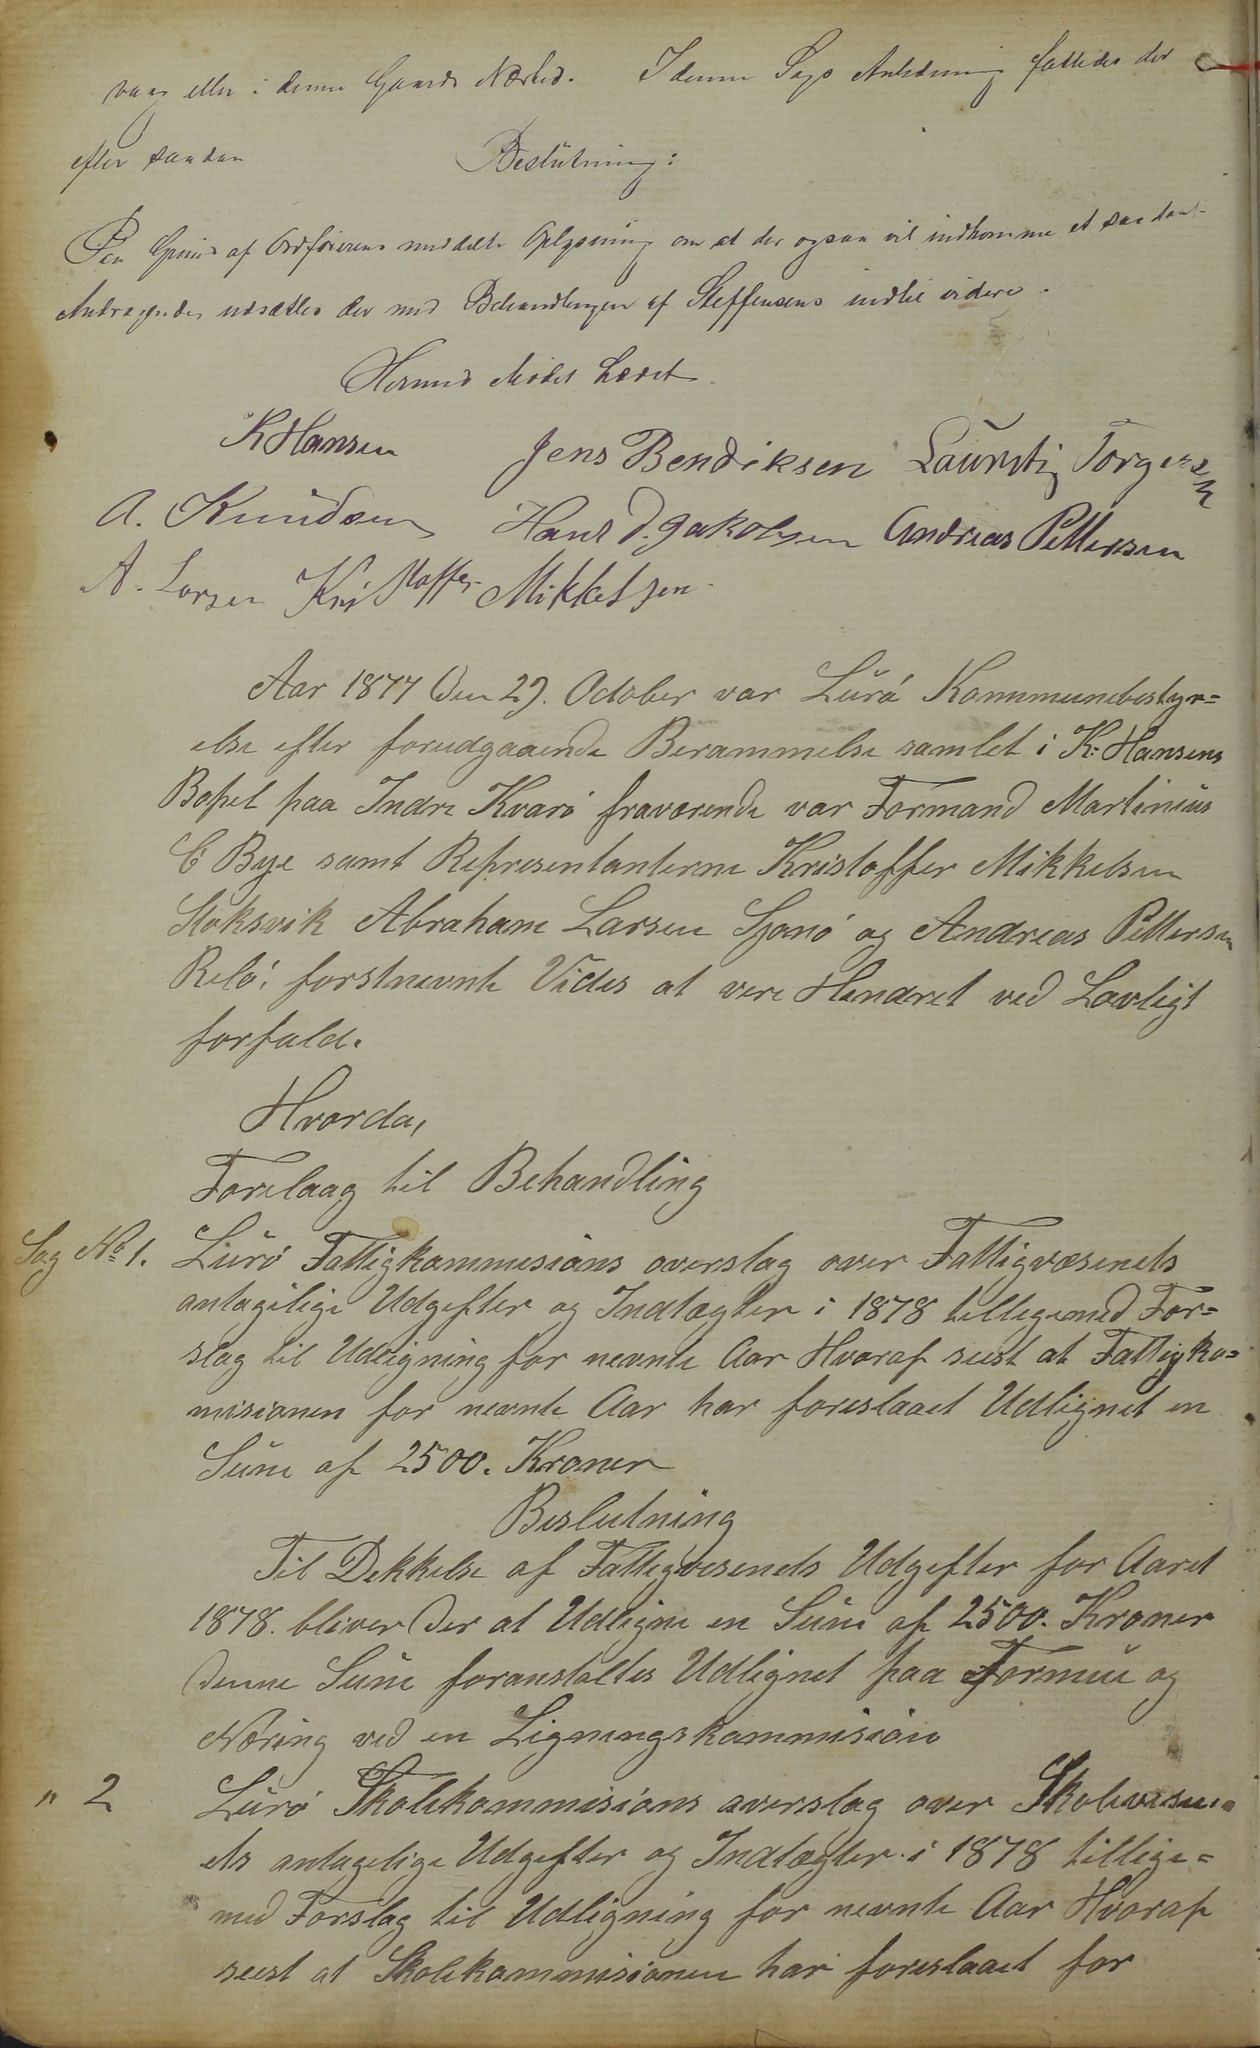 vaag eller i denne Gaards Nærhed. I denne Sags Anledning fattedes der
efter saadan Beslutning:
Paa Grund af Ordførerens meddelte Oplysning om at der ogsaa vil indkomme et saadant
Andragende, udsættes der med Behandlingen af Steffensens indtil videre.
Hermed Mødet hævet.
K Hansen Jens Bendiksen Lauritz Torgersen
A. Knudsen Hans D. Jakobsen Andreas Pettersen
A. Larsen Kristoffer Mikkelsen
Aar 1877 Den 29. October var Lurø Kommunebestyr=
else efter forudgaaende Berammelse samlet i K: Hansens
Bopel paa Indre Kvarø fraværende var Formand Martinius
C Bye samt Representanterne Kristoffer Mikkelsen
Stoksvik Abraham Larsen Sjonø og Andreas Pettersen
Relø: forstnevnte Vides at vere Hindret ved Lovligt
forfald.
Hvorda,
Forelaag til Behandling
Sag No 1. Lurø Fattigkommisions overslag over Fattigvæsenets
antagilige Udgefter og Indtægter i 1878 tilligemed For=
slag til Udligning for nevnte Aar Hvoraf seest at Fattigko=
misionen for nevnte Aar har foreslaaet Udlignet en
Sum af 2500. Kroner
Beslutning
Til Dekkelse af Fattigvesenets Udgefter for Aaret
1878. bliver Der at Udligne en Sum af 2500. Kroner
Denne Sum foranstaltes Udlignet paa Formue og
Næring ved en Ligningskommision
" 2 Lurø Skolekommisions overslag over Skolevesen=
ets antagelige Udgefter og Indtægter i 1878 tillige=
med Forslag til Udligning for nevnte Aar Hvoraf
seest at Skolekommisionen har foreslaaet for